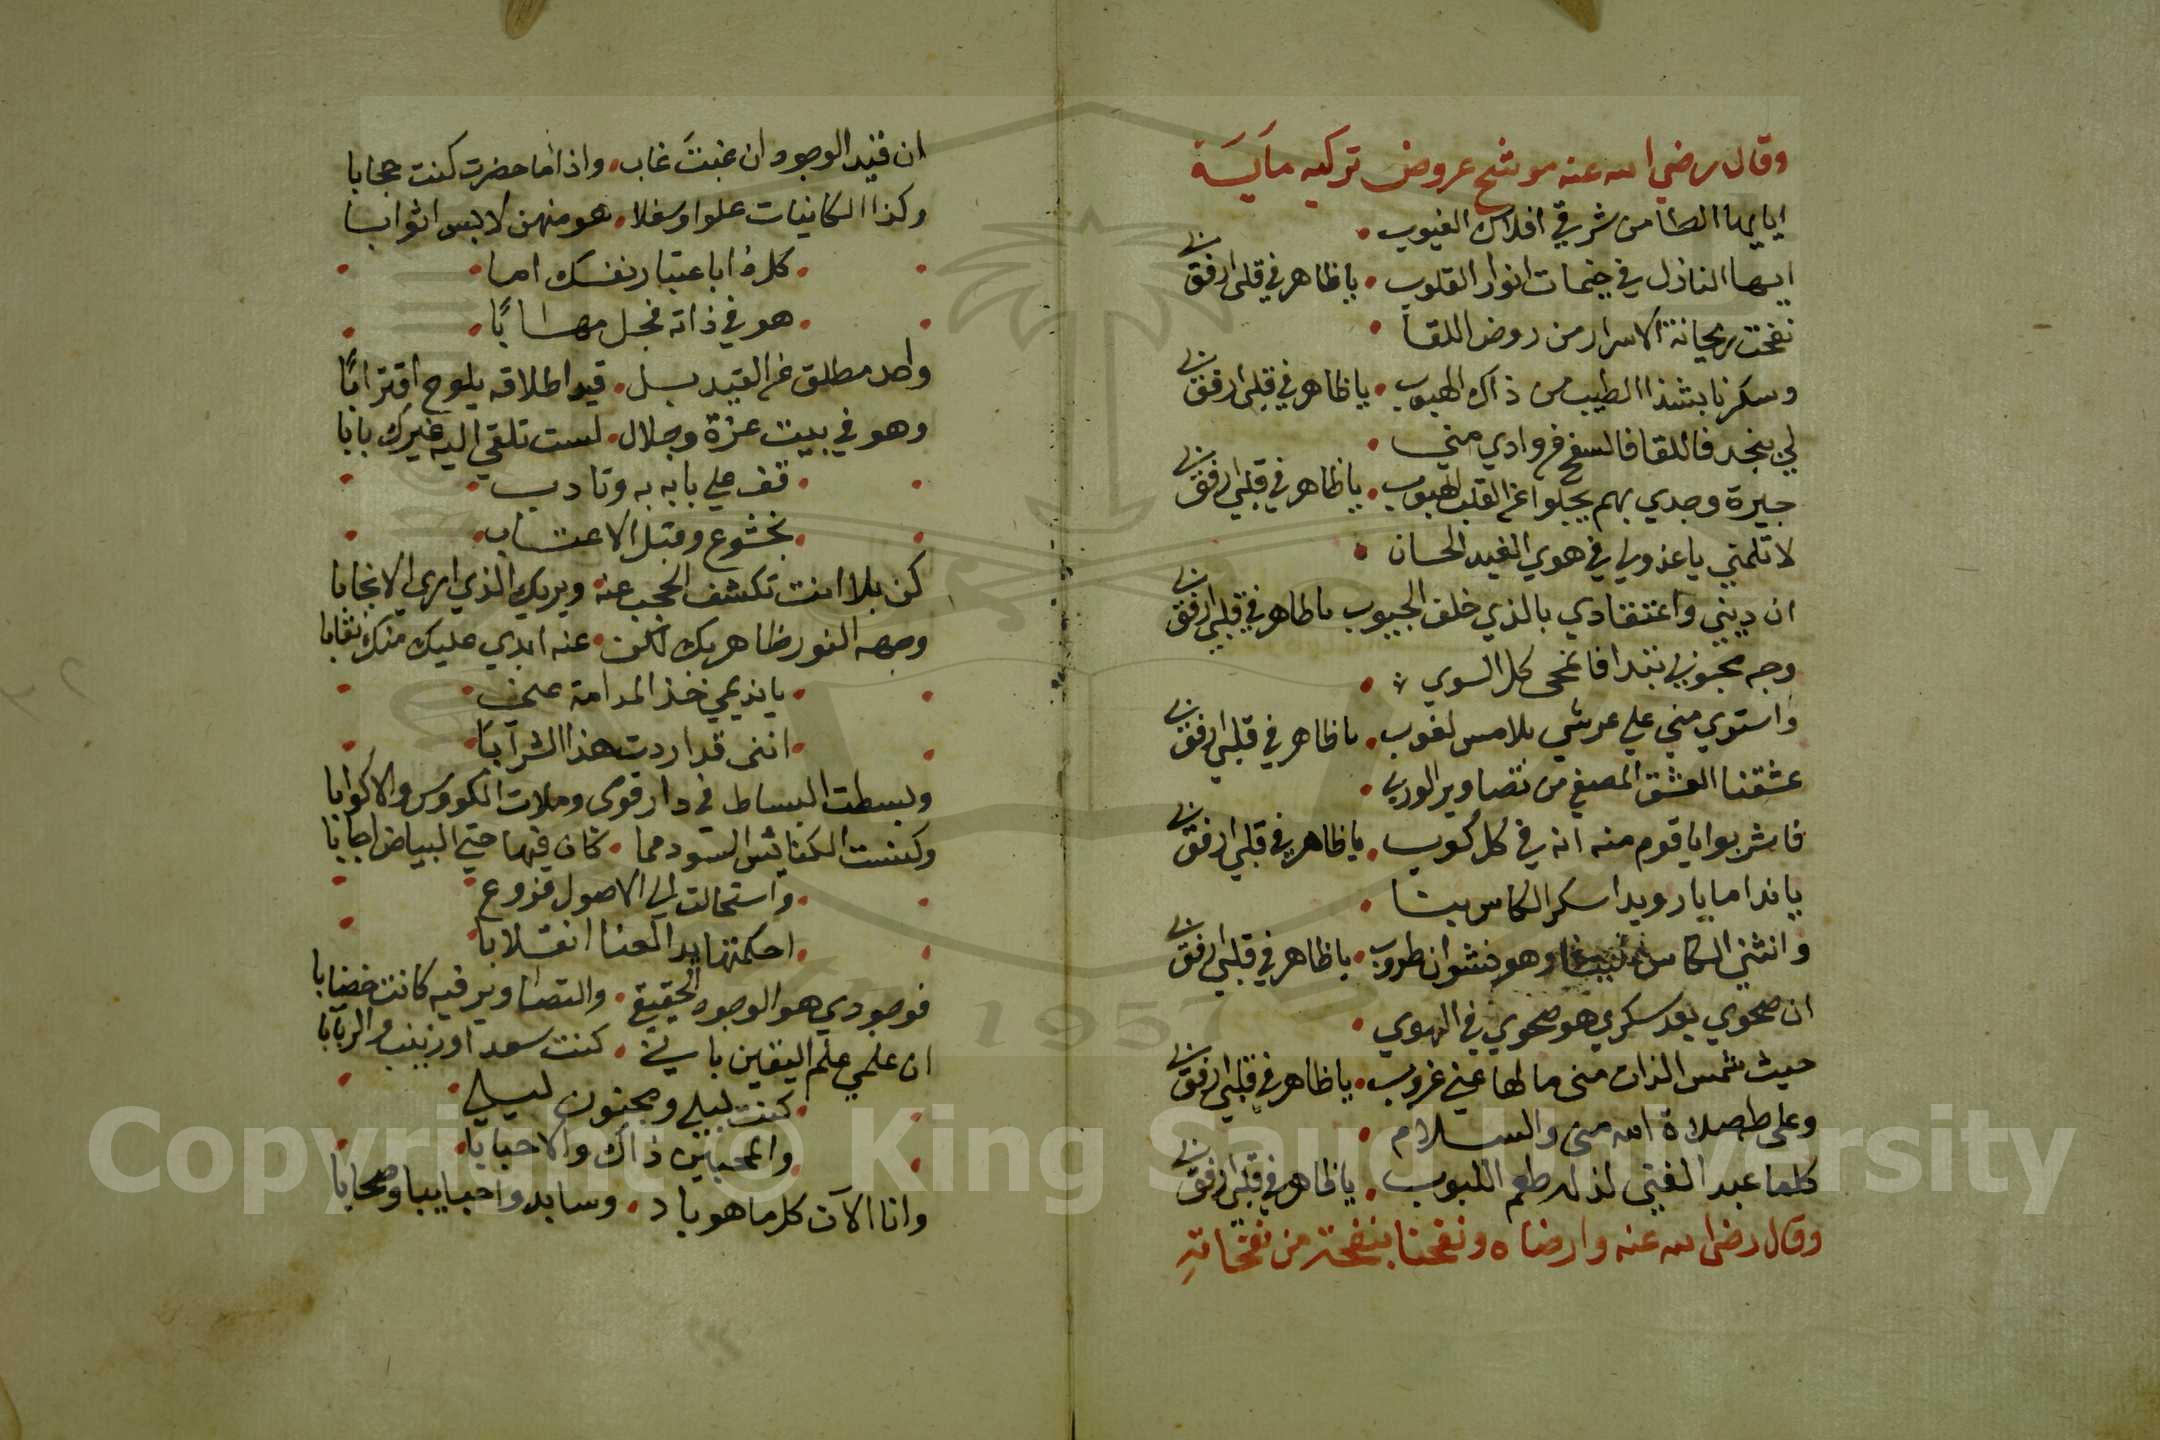 وقال رضي الله عنه موشح عروض تركيه مايسة
ايا يها الطا من شرقي افلاك الغيوب
ايها النازل في خيمات انوار القلوب . يا ظاهر في قلبي ارفق بي
نفحت ريحانة الاسرار من روض اللقا
وسكرنا بشذا الطيب من ذاك الهبوب . يا ظاهر في قلبي ارفق بي
لي بنجد فاللقا فالسفح فروادي مني
جيرة وجدي بهم يجلوا عن القلب الهبوب . يا ظاهر في قلبي ارفق بي
لا تلمني يا عذولي في هوي الغيد الحسان
ان ديني واعتقادي بالذي خلف الجيوب يا ظاهر في قلبي ارفق بي
وجه محبوبي تبدا فانمحى كل السوي
واستوي مني علي عرشي بلا مس لغوب . يا ظاهر في قلبي ارفق بي
عشقنا العشق المصفي من تصاوير الوري
فاشربوا يا قوم منه انه في كل كوب . يا ظاهر في قلبي ارفق بي
يا نداما يا رويدا سكر الكاس بنا
وانثني الكاس وهو نشوان طروب . يا ظاهر في قلبي ارفق بي
ان صحوي بعد سكري هو صحوي في الهوي
حيث شمس الذات مني ما لها عني غروب . يا ظاهر في قلبي ارفق بي
وعلى طه صلاة الله مني والسلام
كلما عبد الغني لذ له طعم اللبوب . يا ظاهر في قلبي ارفق بي
وقال رضي الله عنه وارضاه ونفحنا بنفحة من نفحاته
ان قيد الوجود ان غبت غاب . واذا ما حضرت كنت حجابا
وكذا الكاينات علوا وسفلا . هو منهن لابس اثوابا
كل ذا باعتبار نفسك اما
هو في ذاته فجل مهابا
واحد مطلق عن القيد بل . قيد اطلاقه يلوح اقترابا
وهو في بيت عزة وجلال . لست تلقي اليه غيرك بابا
قف علي بابه به وتادب
بخشوع وقبل الاعتاب
كن بلا انت تكشف الحجب عنه . ويريك الذي اري الانجابا
وجهه النور ظاهر بك لكن . عنه ابدي عليك منك نقابا
يا نديمي خذ المدامة عني
انني قد اردت هذا الشرابا
وبسطت البساط في دار قومي وملات الكووس والاكوابا
وكنست الكنائس السود مما . كان فيها حتي البياض اجابا
واستحالت لي الاصول فروع
احكمتها يد العنا انقلابا
فوجودي هو الوجود الحقيقي . والتصاوير فيه كانت خضابا
ان علمي علم اليقين باني . كنت سعد اوزينب والربابا
كنت ليلي ومجنون ليلي
والمحبين ذاك والاحبابا
وانا الآن كل ما هو باد . وسابد واحبايبا وصحابا
Copyright © King Saud University
1957